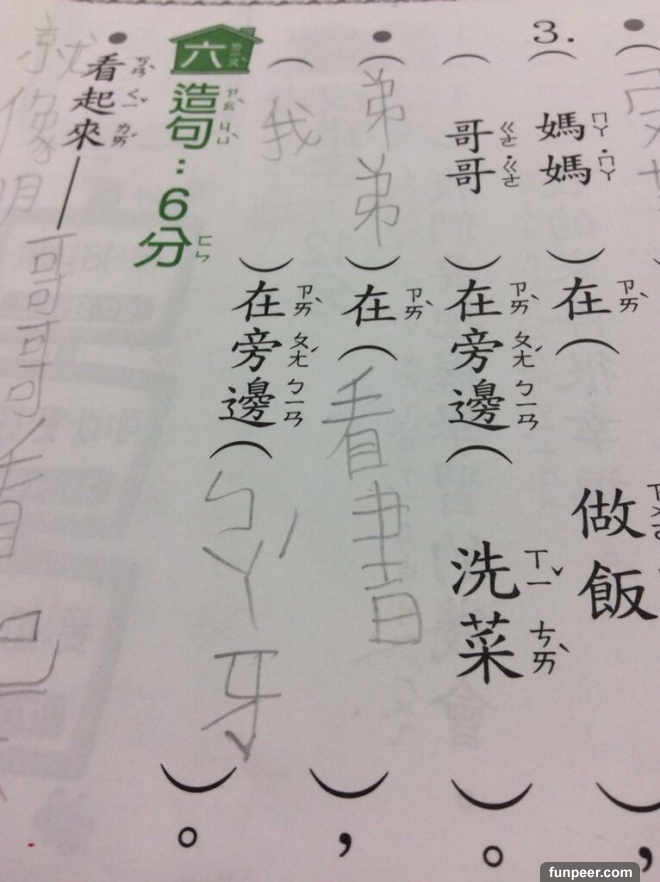 3.（媽媽）在（做飯），
（哥哥）在旁邊（洗菜）。
（弟弟）在（看書），
（我）在旁邊（ㄅㄚˊ牙）。
六 造句：6分
看起來——哥哥看
就像明
funpeer.com